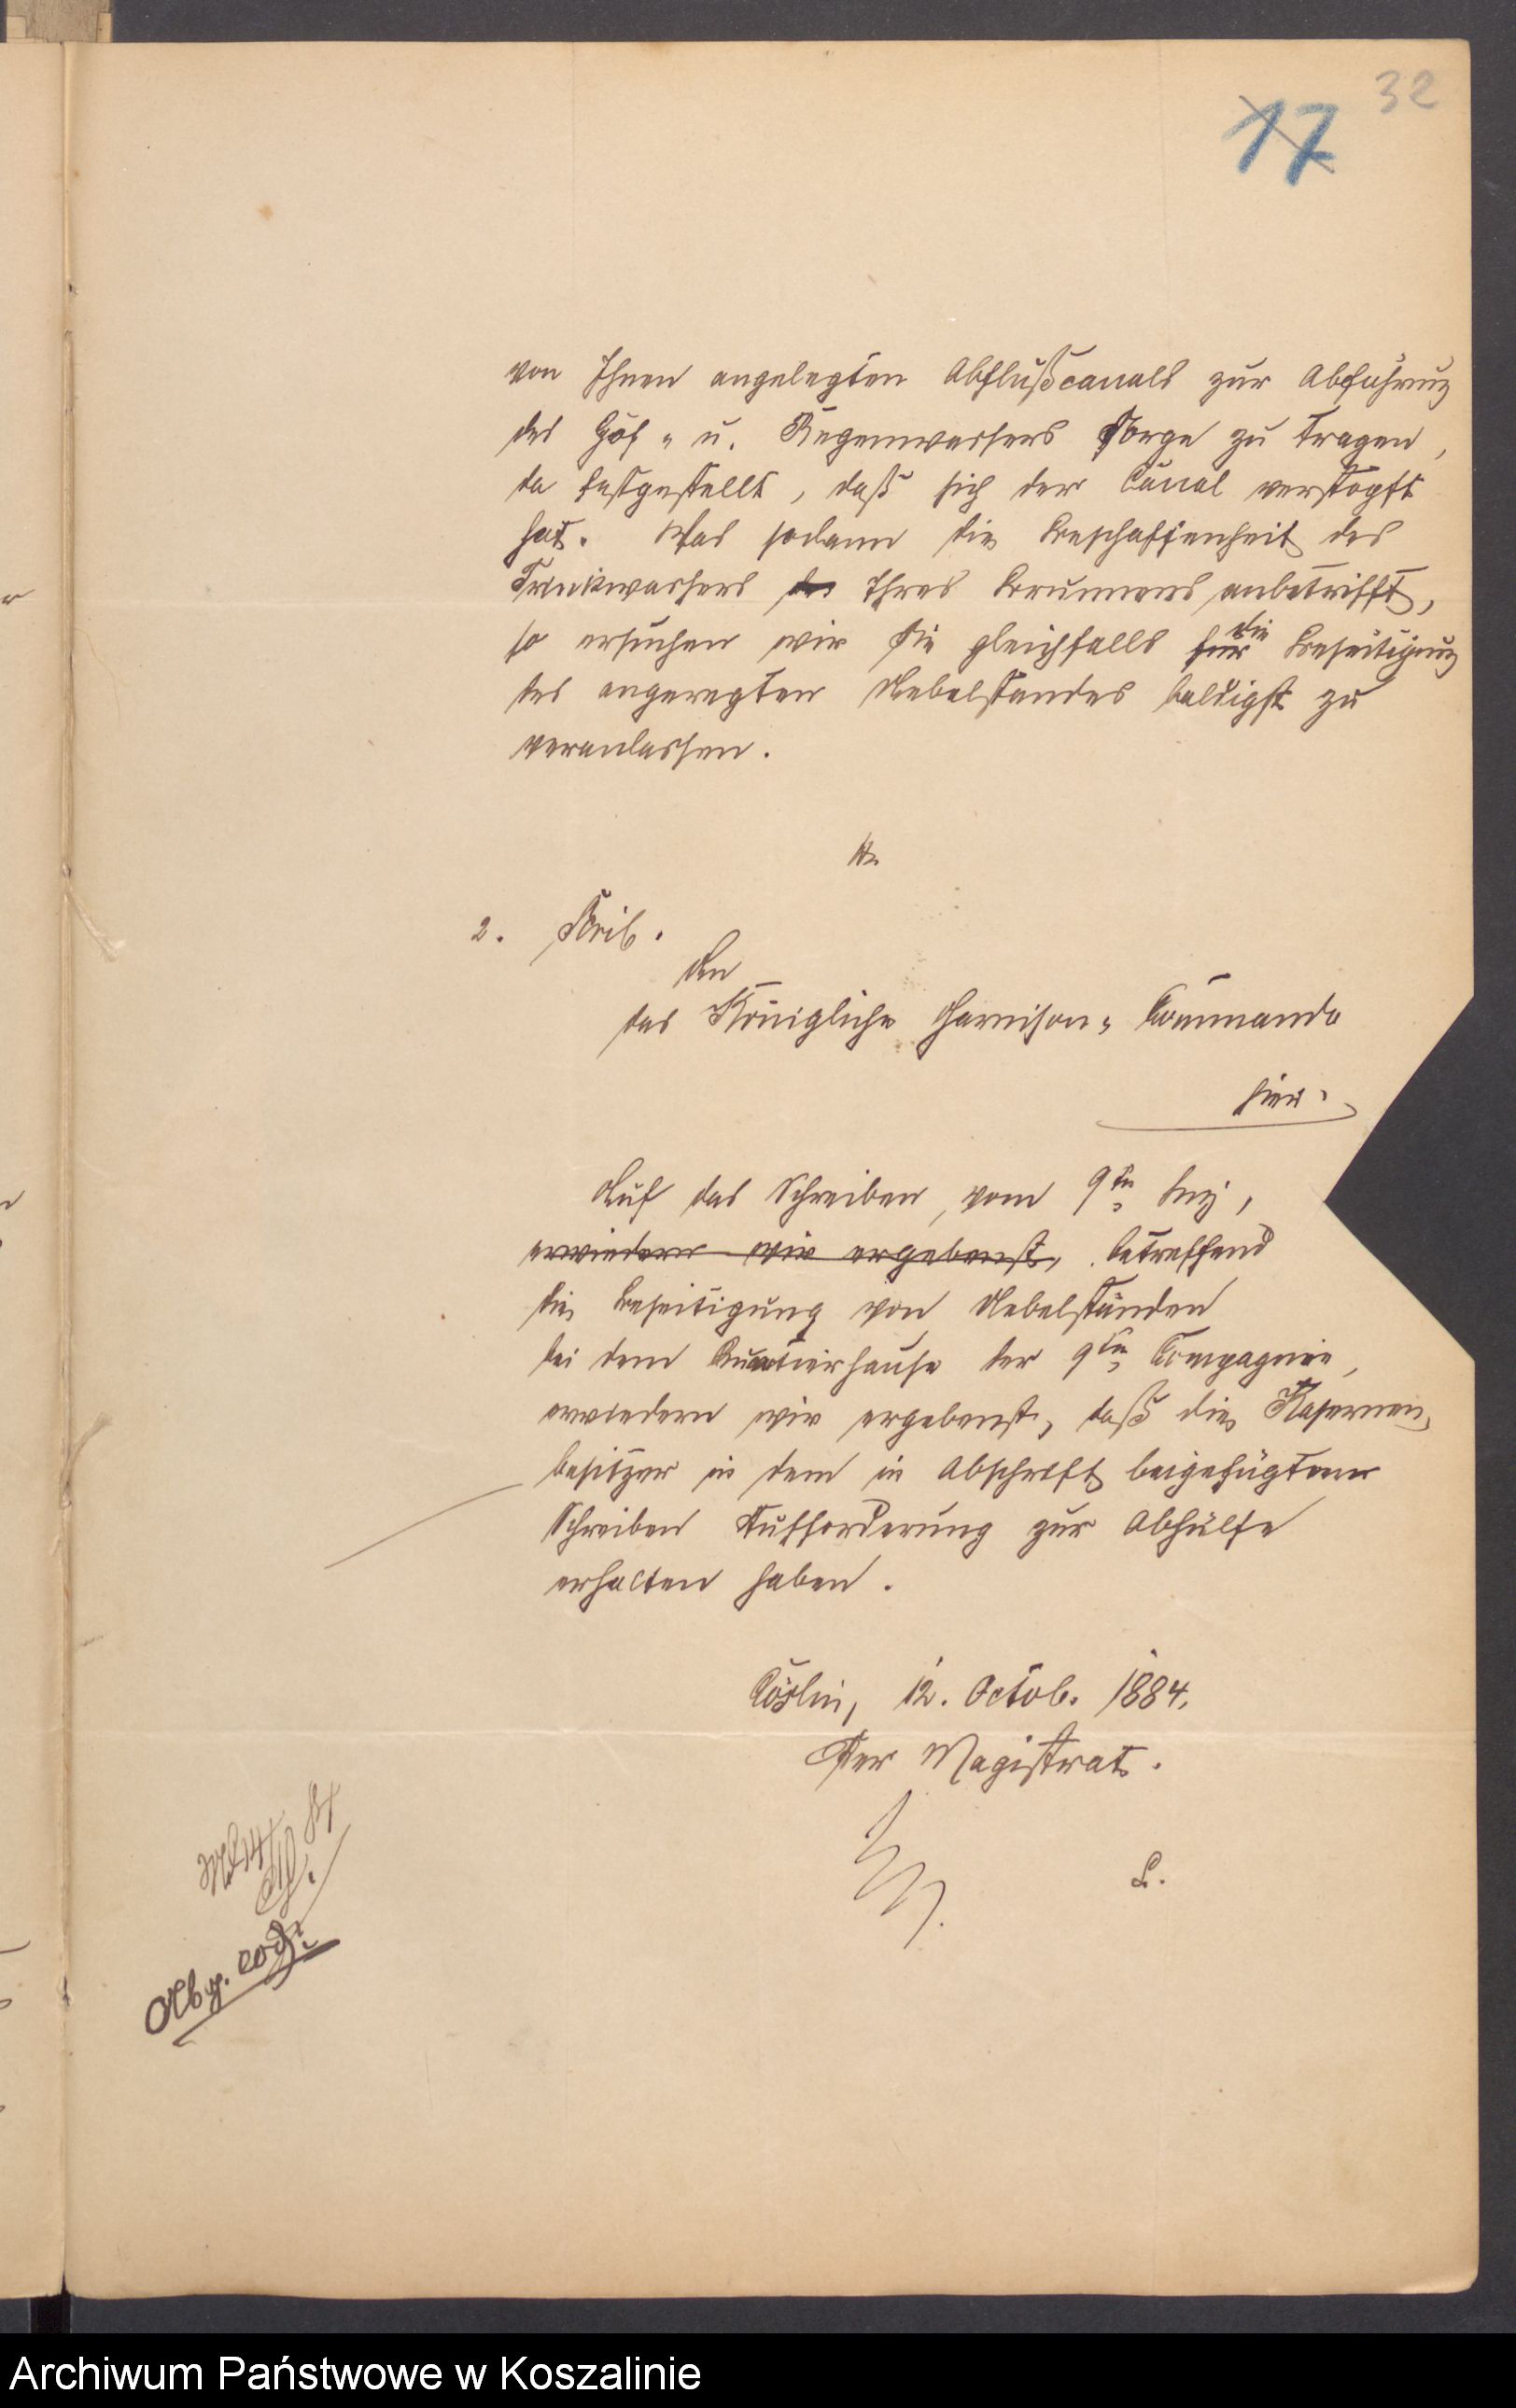 32
17
von Ihnen angelegten Abflußcanals zur Abführung
des Hof- u. Regenwassers Sorge zu tragen,
da festgestellt, daß sich der Canal verstopft
hat. Was sodann die Beschaffenheit des
Trinkwassers des Ihres Brunnens anbetrifft,
so ersuchen wir Sie gleichfalls für die Beseitigung
des angeregten Uebelstandes baldigst zu
veranlassen.
2. Schrb.
An
das Königliche Garnison-Commando
hier.
Auf das Schreiben, vom 9ten huj,
erwiedern wir ergebenst, betreffend
die Beseitigung von Uebelständen
bei dem Quartierhause der 9ten Compagnie,
erwiedern wir ergebenst, daß die Kasernen-
besitzer in dem in Abschrift beigefügten
Schreiben Aufforderung zur Abhülfe
erhalten haben.
Cöslin, 12. Octob. 1884.
Der Magistrat.
L.
14/10. 84
Abg. eod.
Archiwum Państwowe w Koszalinie